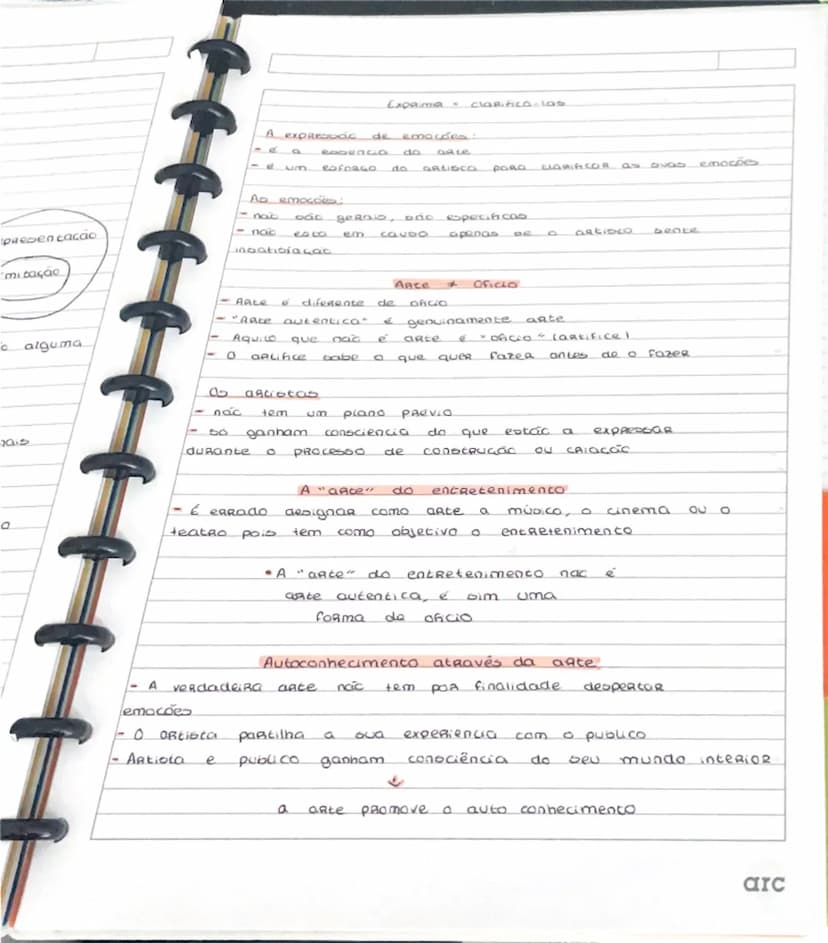 presentação
mitação
alguma
Exprimir = clarificá-las
A expressão de emoções:
- é a essencia da arte
- é um esforço do artista para clarificar as suas emoções
As emoções:
- não são gerais, são especificas
- não esta em causa apenas se o artista sente
insatisfação
Arte ≠ Oficio
- Arte é diferente de oficio
- "Arte autentica" é genuinamente arte
- Aquilo que não é arte é "oficio" (artifice)
- O artifice sabe o que quer fazer antes de o fazer
Os artistas
- não tem um plano prévio
- só ganham consciencia do que estão a expressar
durante o processo de construção ou criação
A "arte" do entretenimento
- É errado designar como arte a música, o cinema ou o
teatro pois tem como objetivo o entretenimento
• A "arte" do entretenimento não é
arte autentica, é sim uma
forma de oficio
Autoconhecimento através da arte:
- A verdadeira arte não tem por finalidade despertar
emoções
- O artista partilha a sua experiencia com o publico
- Artista e publico ganham consciência do seu mundo interior
↓
a arte promove o auto conhecimento
arc